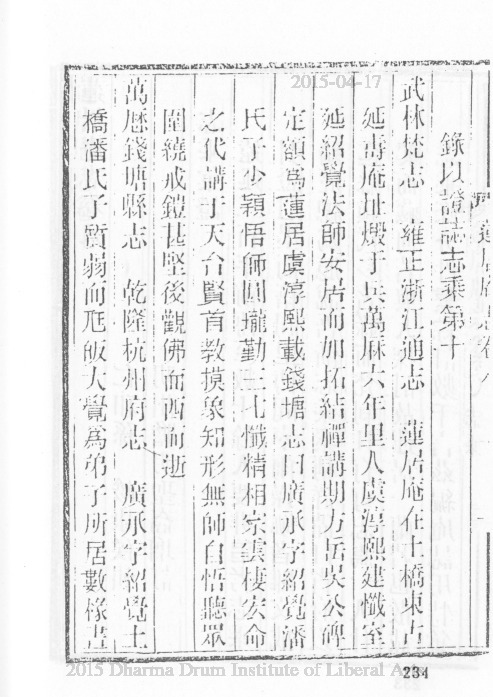 2015-04-17
蓮居庵志卷八
錄以證誌志乘第十
武林梵志　雍正浙江通志　蓮居庵在土橋東古
延壽庵址燬于兵萬厤六年里人虞淳熙建懺室
延紹覺法師安居而加拓結禪講期方岳吳公碑
定額為蓮居虞淳熙載錢塘志曰廣承字紹覺潘
氏子少穎悟師圓瓏勤三七懺精相宗雲棲宏命
之代講于天台賢首教摸象知形無師自悟聽眾
圍繞戒鎧甚堅後觀佛而西而逝
萬厤錢塘縣志　乾隆杭州府志　廣承字紹覺土
橋潘氏子質弱而尫皈大覺為弟子所居數椽晝
2015 Dharma Drum Institute of Liberal Arts
234